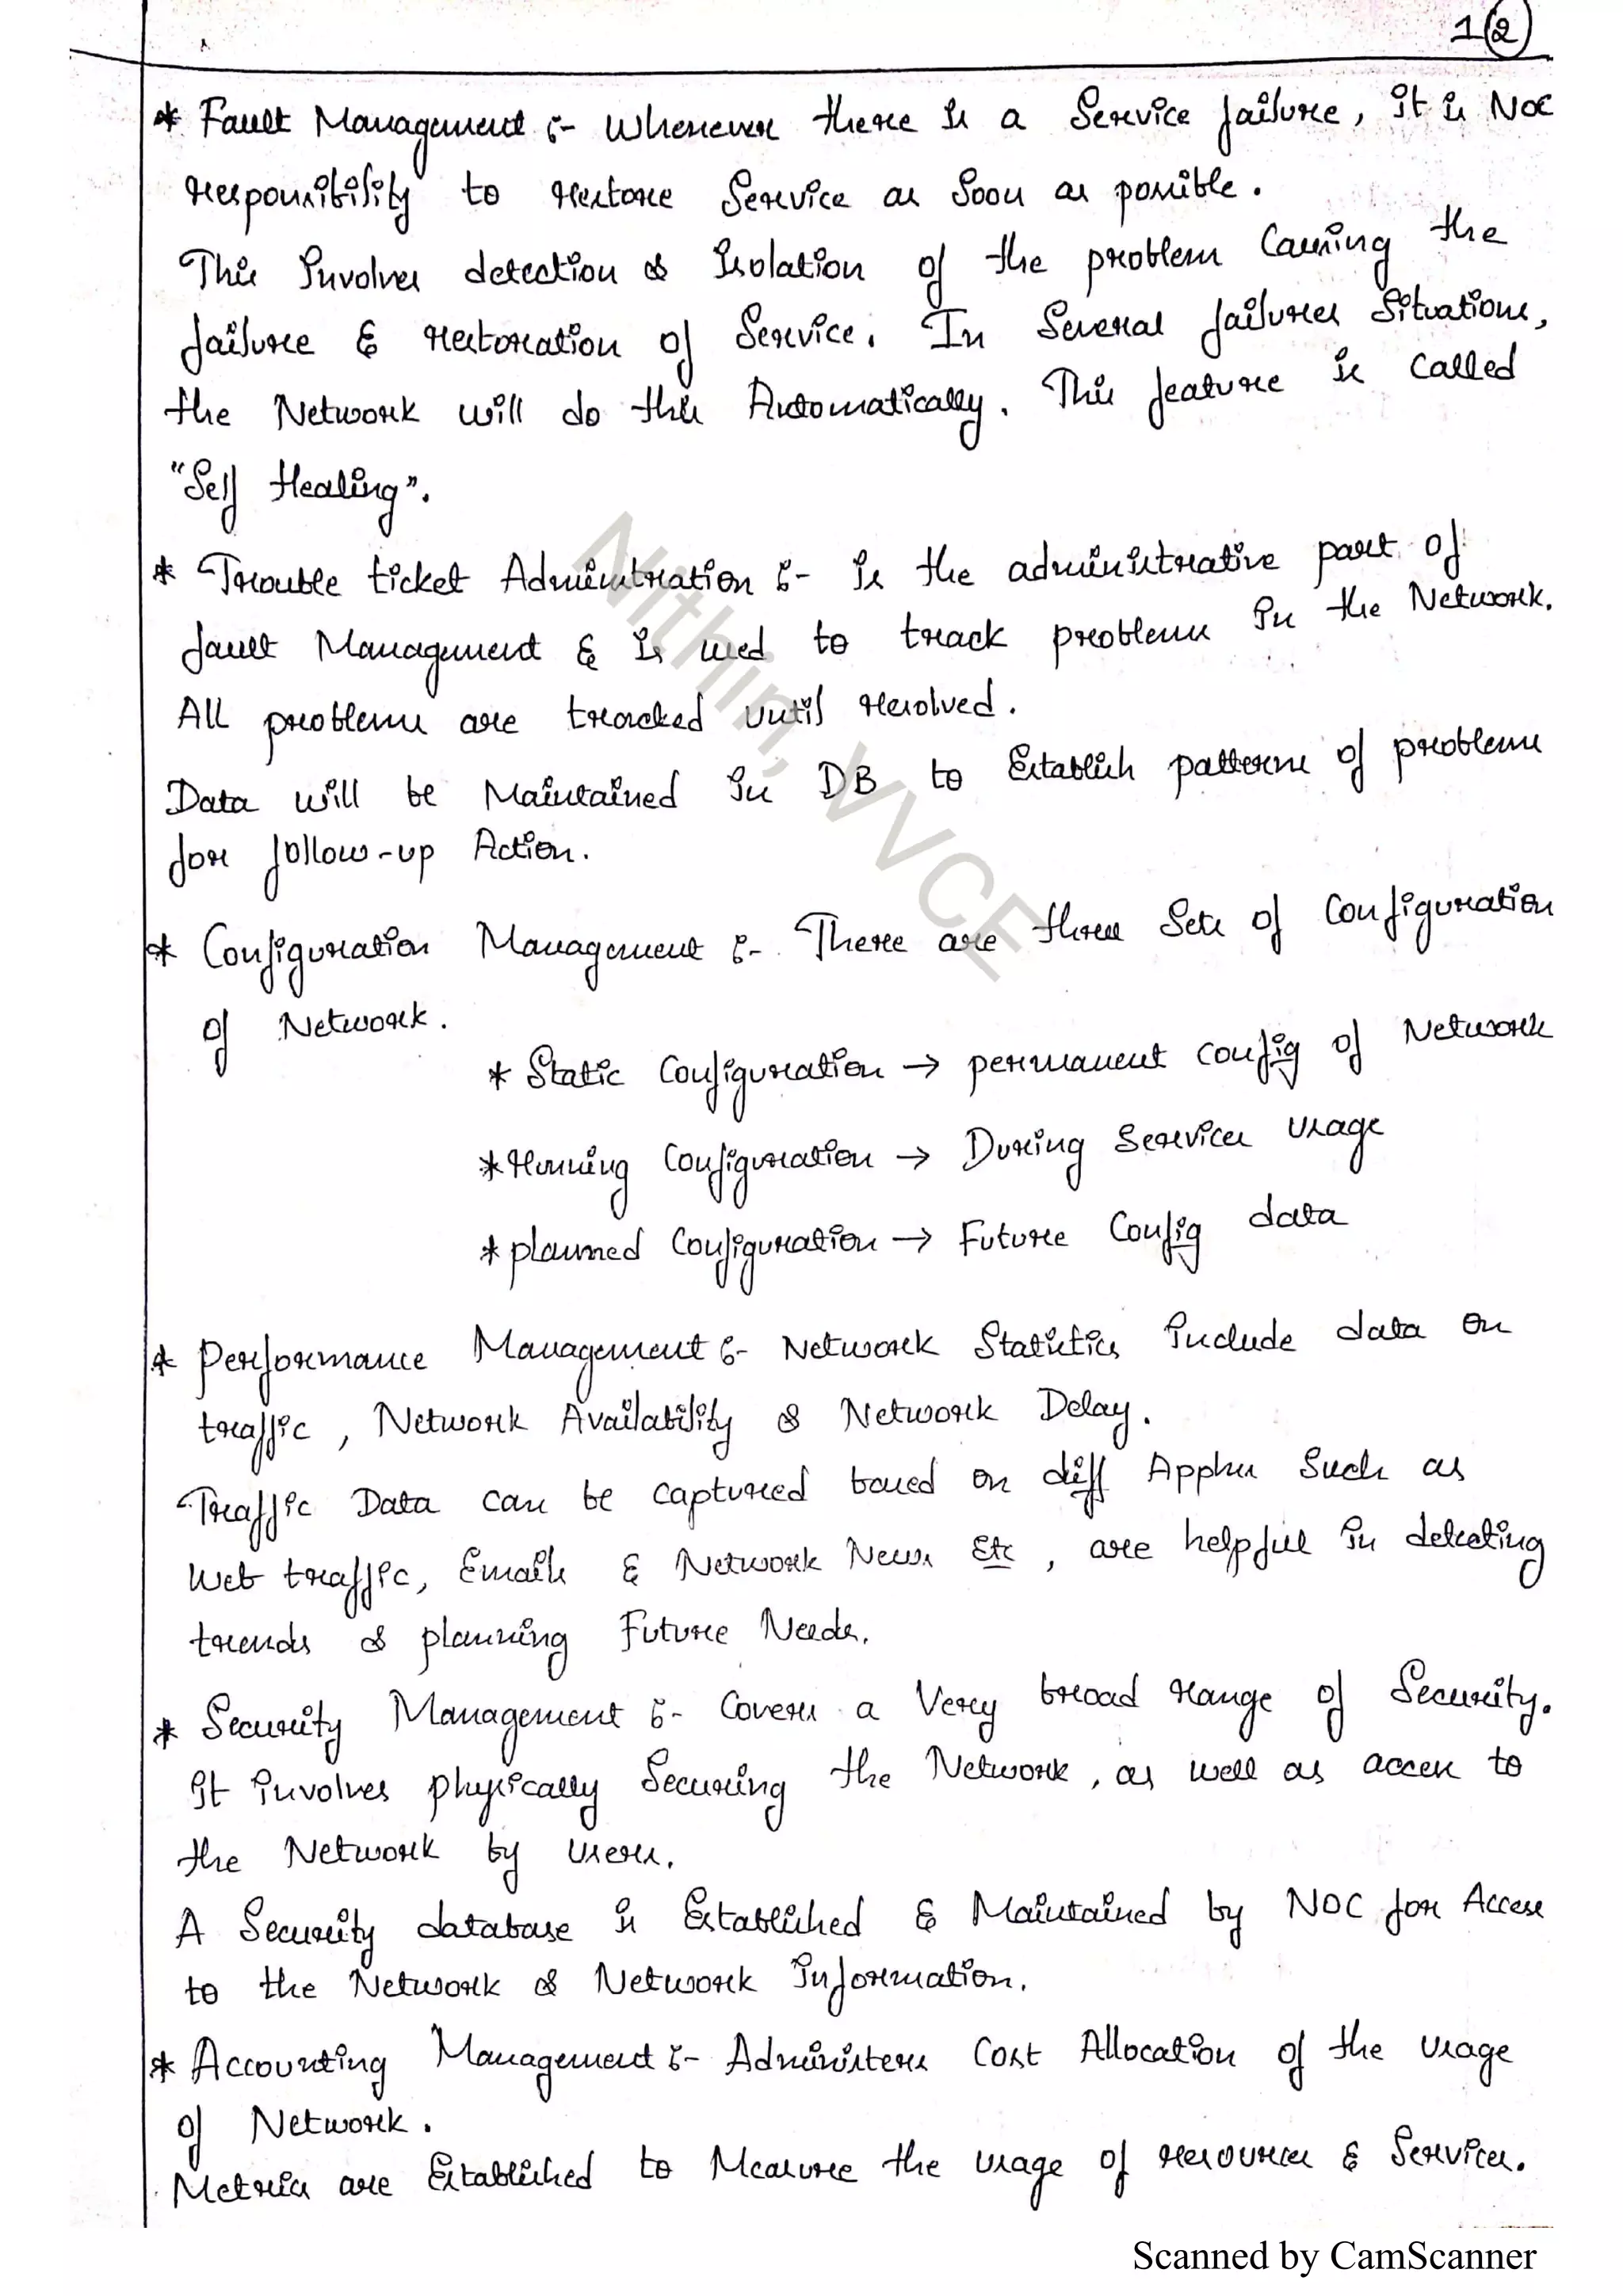 1 2
* Fault Management :- Whenever there is a Service failure, it is NOC
responsibility to restore Service as Soon as possible.
This Involves detection & Isolation of the problem Causing the
failure & restoration of Service. In Several failures Situations,
the Network will do this Automatically. This feature is called
"Self Healing".
* Trouble ticket Administration :- Is the administrative part of
fault Management & Is used to track problems In the Network.
All problems are tracked until resolved.
Data will be Maintained In DB to Establish patterns of problems
for follow-up Action.
* Configuration Management :- There are three Sets of Configuration
of Network.
* Static Configuration → permanent config of Network
* running Configuration → During Services usage
* planned Configuration → Future Config data
* performance Management :- Network Statistics Include data on
traffic, Network Availability & Network Delay.
Traffic Data can be captured based on diff Appln's Such as
Web traffic, Emails & Network News Etc, are helpful In detecting
trends & planning Future Needs.
* Security Management :- Covers a Very broad range of Security.
It Involves physically Securing the Network, as well as access to
the Network by users.
A Security database is Established & Maintained by NOC for Access
to the Network & Network Information.
* Accounting Management :- Administers Cost Allocation of the usage
of Network.
Metrics are Established to Measure the usage of resources & Services.
Nithin, VVCE
Scanned by CamScanner